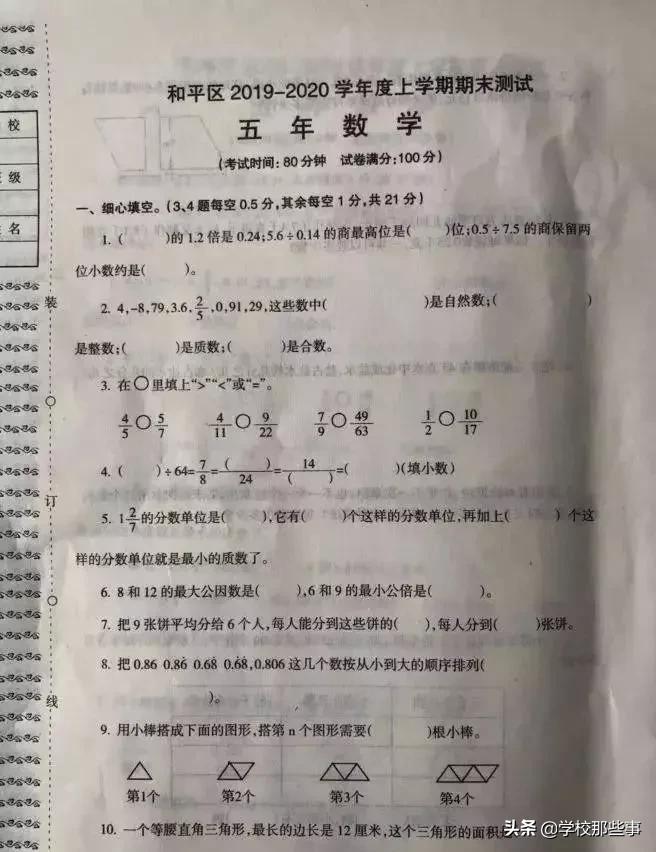 校
级
名
装
订
线
和平区 2019-2020 学年度上学期期末测试
五 年 数 学
(考试时间:80分钟 试卷满分:100分)
一、细心填空。(3、4题每空0.5分,其余每空1分,共21分)
1. ( )的1.2倍是0.24;5.6÷0.14的商最高位是( )位;0.5÷7.5的商保留两
位小数约是( )。
2. 4,-8,79,3.6,2/5,0,91,29,这些数中( )是自然数;( )
是整数;( )是质数;( )是合数。
3. 在○里填上“>”“<”或“=”。
4/5○5/7 4/11○9/22 7/9○49/63 1/2○10/17
4. ( )÷64=7/8=( )/24=14/( )=( )(填小数)
5. 1 2/7的分数单位是( ),它有( )个这样的分数单位,再加上( )个这
样的分数单位就是最小的质数了。
6. 8和12的最大公因数是( ),6和9的最小公倍是( )。
7. 把9张饼平均分给6个人,每人能分到这些饼的( ),每人分到( )张饼。
8. 把0.86 0.8̇6̇ 0.68 0.6̇8̇,0.806这几个数按从小到大的顺序排列(
)。
9. 用小棒搭成下面的图形,搭第n个图形需要( )根小棒。
第1个 第2个 第3个 第4个
10. 一个等腰直角三角形,最长的边长是12厘米,这个三角形的面积
头条 @学校那些事